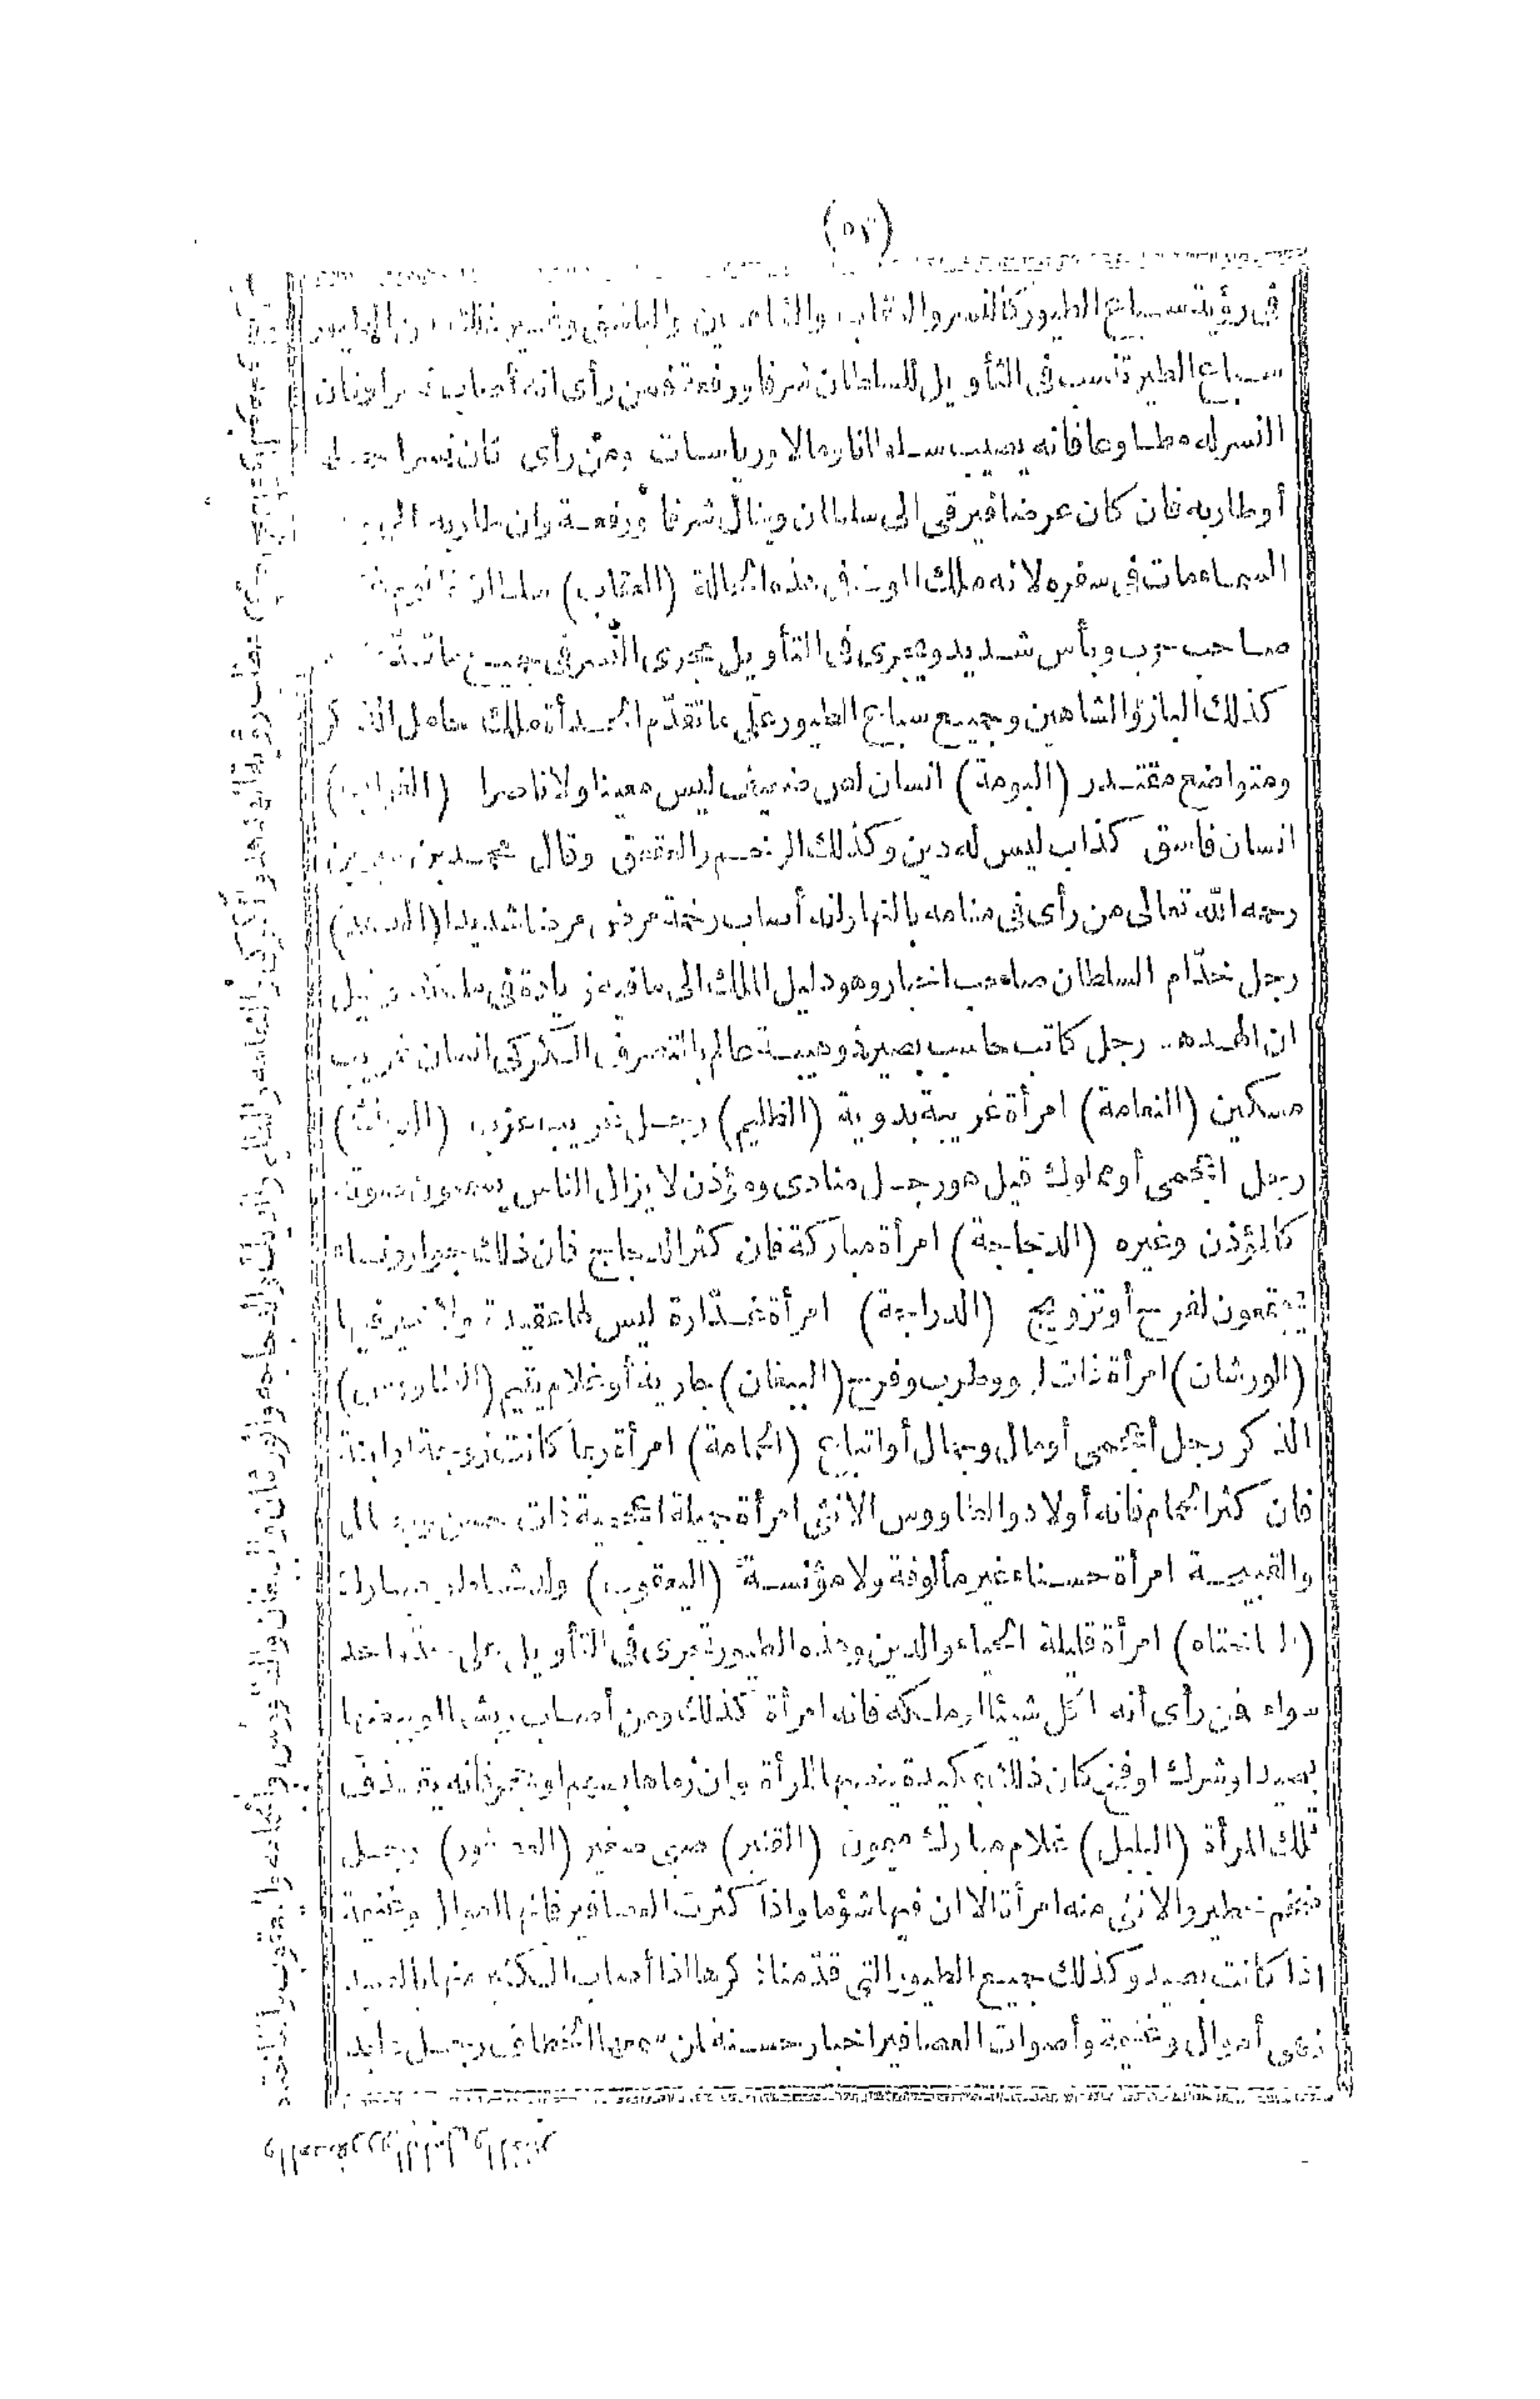 (٥٢)
في رؤية سباع الطيور كالنسر والعقاب والشاهين والباشق وغير ذلك من الطيور
سباع الطير تنسب في التأويل للسلطان شرفا ورفعة فمن رأى انه أصاب نسرا وكان
النسر له مطاوعا فانه يصيب سلطانا ومالا ورياسات ومن رأى كان نسرا حمله
أو طار به فان كان عرضا فيرقى الى سلطان وينال شرفا ورفعة وان طار به الى
السماء مات في سفره لانه ملك الموت في هذه الحالة (العقاب) سلطان
صاحب حرب وبأس شديد ويجرى في التأويل مجرى النسر في جميع ما تقدم
كذلك البازو الشاهين وجميع سباع الطيور على ما تقدّم الحدأة ملك خامل الذكر
ومتواضع مقتدر (البومة) انسان لص ضعيف ليس معينا ولا ناصرا (الغراب)
انسان فاسق كذاب ليس له دين وكذلك الرخم والعقعق وقال محمد بن سيرين
رحمه الله تعالى من رأى في منامه بالنهار انه أصاب رخمة مرض مرضا شديدا (الهدهد)
رجل خدّام السلطان صاحب اخبار وهو دليل الملك الى ما فيه زيادة في ملكه وقيل
ان الهدهد رجل كاتب حاسب بصير ذو هيبة عالم بالتصرف الكركى انسان غريب
مسكين (النعامة) امرأة غريبة بدوية (الظليم) رجل غريب عزب (الديك)
رجل اعجمى أو مملوك قيل هو رجل منادى ومؤذن لا يزال الناس يسمعون صوته
كالمؤذن وغيره (الدجاجة) امرأة مباركة فان كثر الدجاج فان ذلك جوار ونساء
يجتمعون لفرح أو تزويج (الدراجة) امرأة غدّارة ليس لها عقيدة ولا خير فيها
(الورشان) امرأة ذات لهو وطرب وفرح (الببغان) جارية أو غلام يتيم (الطاووس)
الذكر رجل أعجمى أو مال وجمال أو اتباع (الحمامة) امرأة ربما كانت زوجة او ابنة
فان كثر الحمام فانه أولاد والطاووس الانثى امرأة جميلة اعجمية ذات حسن وجمال
والقبجة امرأة حسناء غير مألوفة ولا مؤنسة (اليعقوب) ولد شاطر مبارك
(الفاختاه) امرأة قليلة الحياء والدين وهذه الطيور تجرى في التأويل على حد واحد
سواء فمن رأى أنه اكل شيئا او ملكه فانه امرأة كذلك ومن أصاب ريشها او بيضها
بصيد او شرك او فخ كان ذلك مكيدة ينصبها لمرأة وان رماها بسهم او بحجر فانه يقذف
تلك المرأة (البلبل) غلام مبارك ميمون (القنبر) صبي صغير (العصفور) رجل
ضخم خطير والانثى منه امرأة الا ان فيها شؤما واذا كثرت العصافير فانها اموال وغنيمة
اذا كانت بصيد وكذلك جميع الطيور التي قدّمنا ذكرها اذا أصاب الكثير منها بالصيد
فهى أموال وغنيمة وأصوات العصافير اخبار حسنة لمن سمعها الخطاف رجل عابد